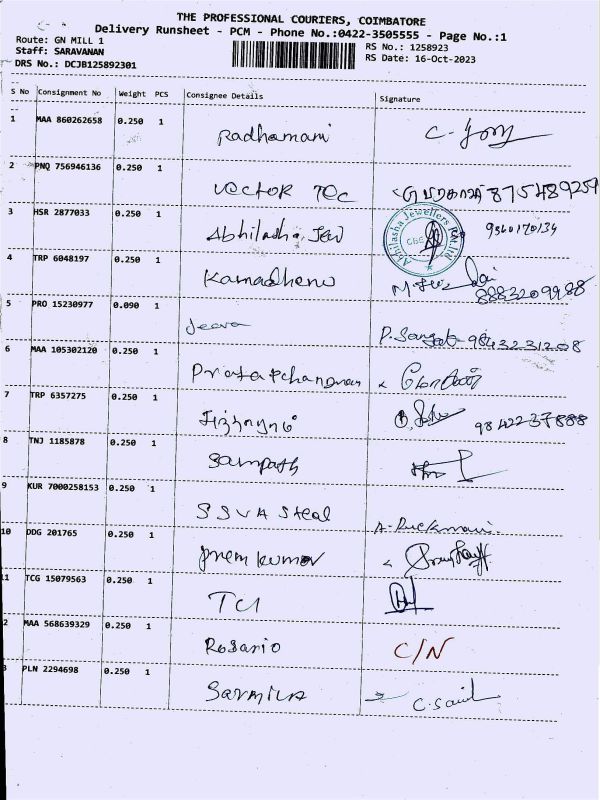 THE PROFESSIONAL COURIERS, COIMBATORE
Delivery Runsheet - PCM - Phone No.:0422-3505555 - Page No.:1
Route: GN MILL 1
RS No.: 1258923
Staff: SARAVANAN
RS Date: 16-Oct-2023
DRS No.: DCJB125892301
S No Consignment No Weight PCS Consignee Details Signature
1 MAA 860262658 0.250 1 Radhamani
2 PNQ 756946136 0.250 1 Vector Tec
3 HSR 2877033 0.250 1 Abhilasha Jew
Abhilasha Jewellers Pvt. Ltd
CBE
4 TRP 6048197 0.250 1 Kamadhenu 8883209988
5 PRO 15230977 0.090 1 Jeeva
6 MAA 105302120 0.250 1
7 TRP 6357275 0.250 1 9842237888
8 TNJ 1185878 0.250 1 Sampath
9 KUR 7000258153 0.250 1 SSVA Steal
10 DDG 201765 0.250 1 Prem kumar
11 TCG 15079563 0.250 1 TCI
2 MAA 568639329 0.250 1 Rosario C/N
3 PLN 2294698 0.250 1 Sarmila